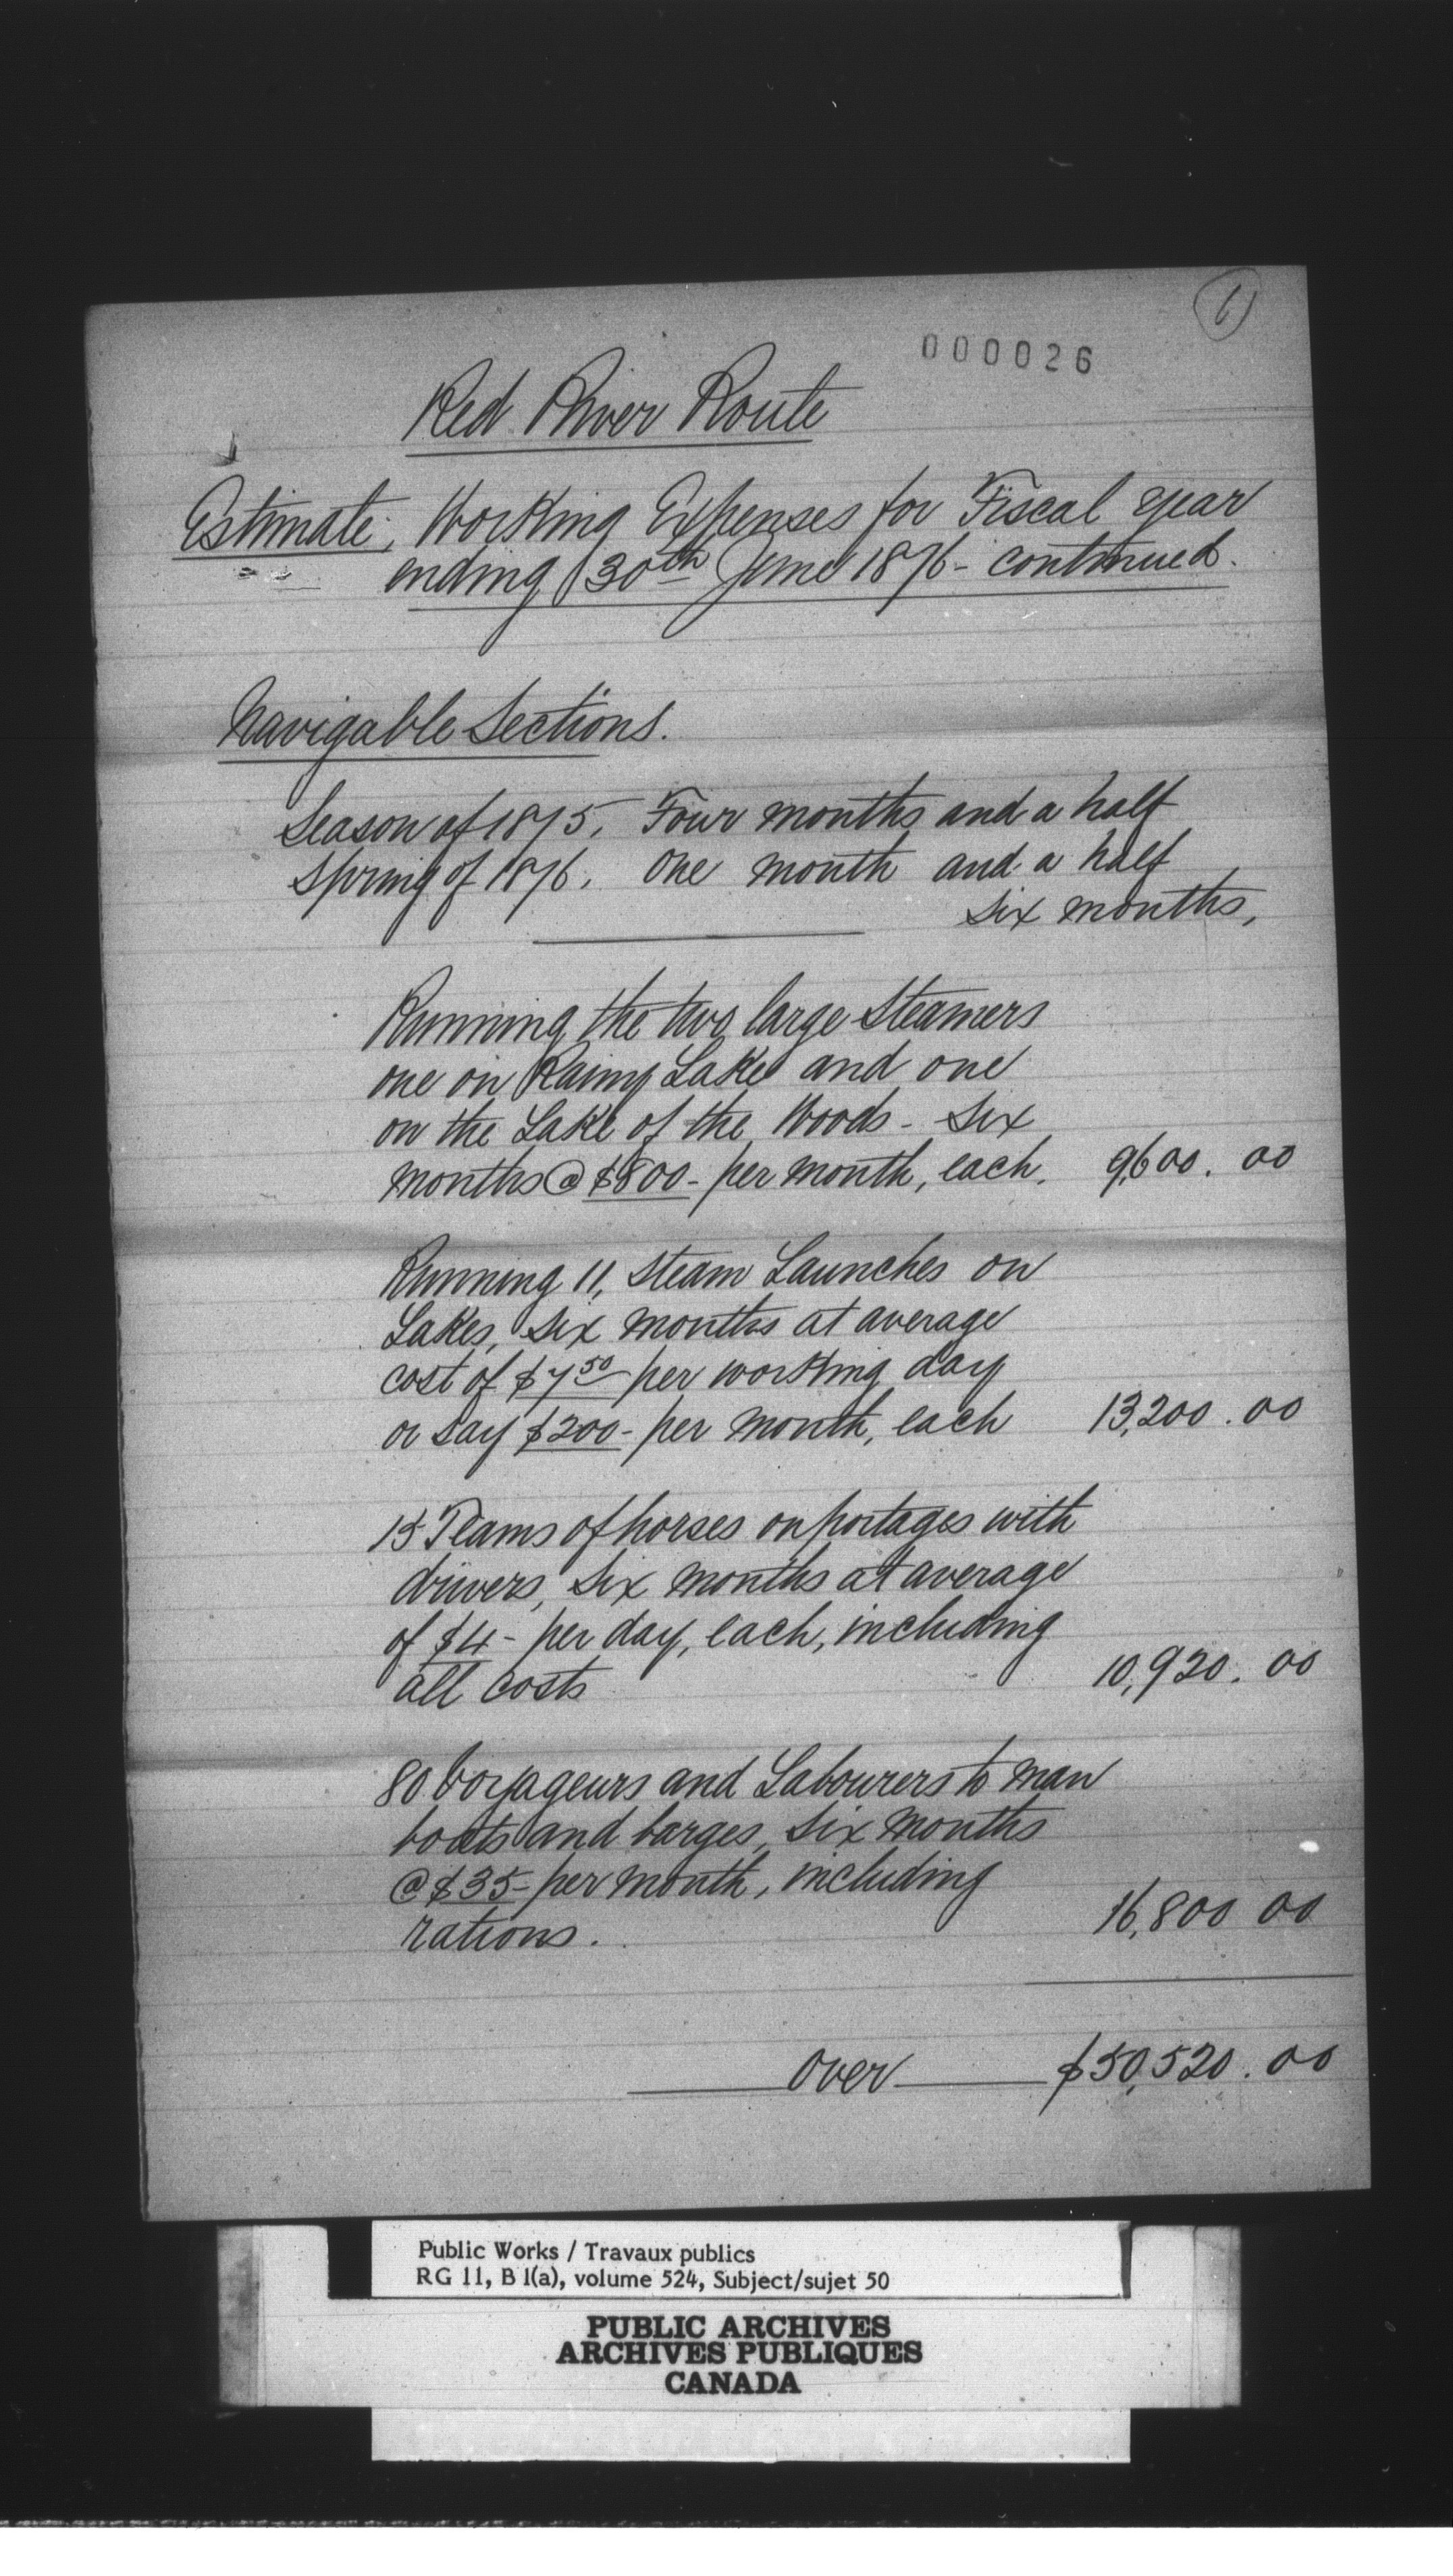 6
000026
Red River Route
Estimate; Working Expenses for Fiscal year
ending 30th June 1876 - continued.
Navigable Sections.
Season of 1875, Four months and a half
Spring of 1876, One month and a half
Six months,
Running the two large Steamers
one on Rainy Lake and one
on the Lake of the Woods - Six
months @ $800- per month, each. 9,600.00
Running 11, Steam Launches on
Lakes, Six months at average
cost of $7 50 per working day
or say $200- per month, each 13,200.00
15 Teams of horses on portages with
drivers, Six months at average
of $4- per day, each, including
all costs 10,920.00
80 Voyageurs and Labourers to man
boats and barges, Six months
@ $35- per month, including
rations. 16,800 00
Over $50,520.00
Public Works / Travaux publics
RG 11, B 1(a), volume 524, Subject/sujet 50
PUBLIC ARCHIVES
ARCHIVES PUBLIQUES
CANADA